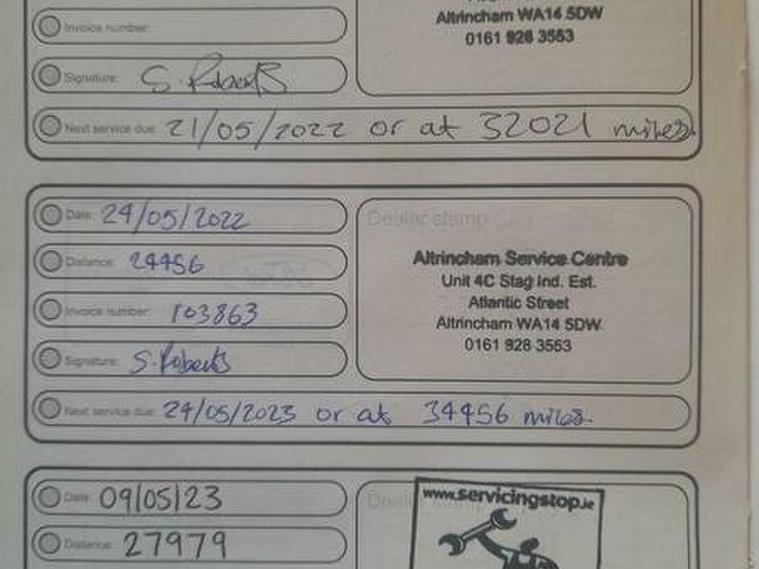 Altrincham WA14 5DW
0161 928 3553
Invoice number:
Signature: S. Roberts
Next service due: 21/05/2022 or at 32021 miles.
Date: 24/05/2022
Dealer stamp
Distance: 24456
Altrincham Service Centre
Unit 4C Stag Ind. Est.
Invoice number: 103863
Atlantic Street
Altrincham WA14 5DW
Signature: S. Roberts
0161 928 3553
Next service due: 24/05/2023 or at 34456 miles.
Date: 09/05/23
www.servicingstop.ie
Distance: 27979